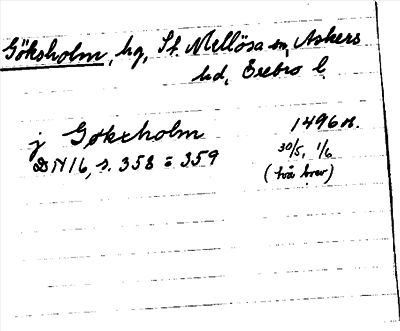 Göksholm, hg, St. Mellösa sn, Askers
hd, Örebro l.
j Gøkxholm 1496 or.
DN 16, s. 358 = 359 30/5, 1/6
(två brev)